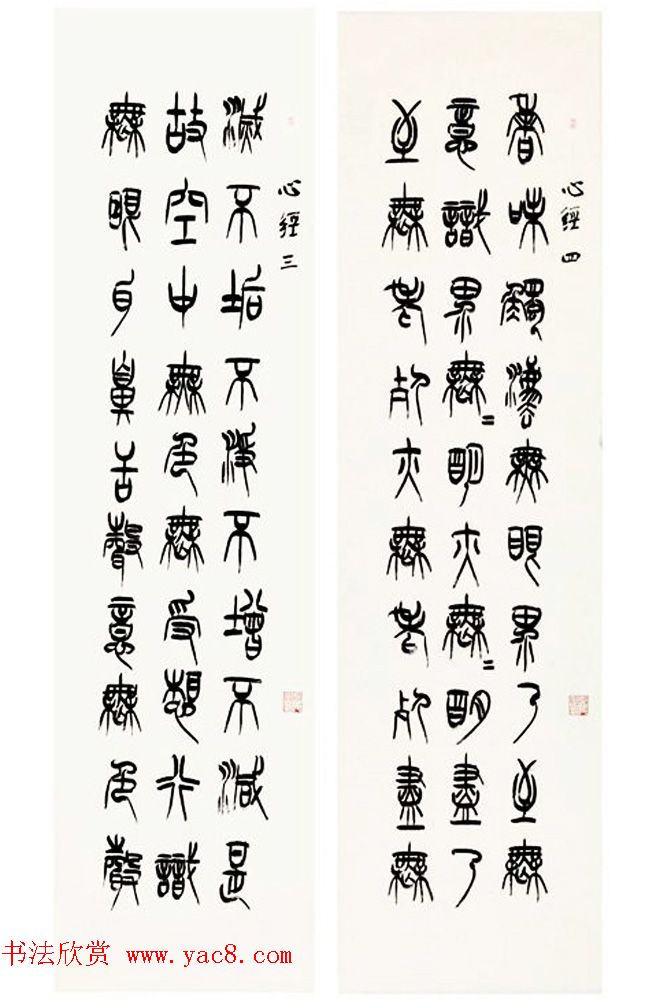 心經三
滅不垢不淨不增不減是
故空中無色無受想行識
無眼耳鼻舌意無色聲
心經四
香味觸法無眼界乃至無
意識界無〻明亦無〻明盡乃
至無老死亦無老死盡無
书法欣赏 www.yac8.com